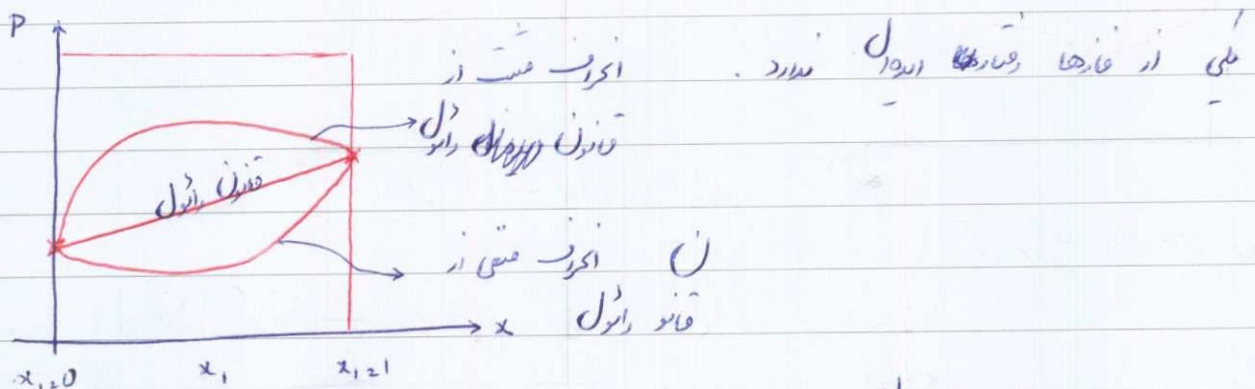 یکی از فازها رفتار ایده‌آل ندارد.
P
انحراف مثبت از
قانون رائول
قانون رائول
انحراف منفی از
قانون رائول
x
x₁=0 x₁ x₁=1